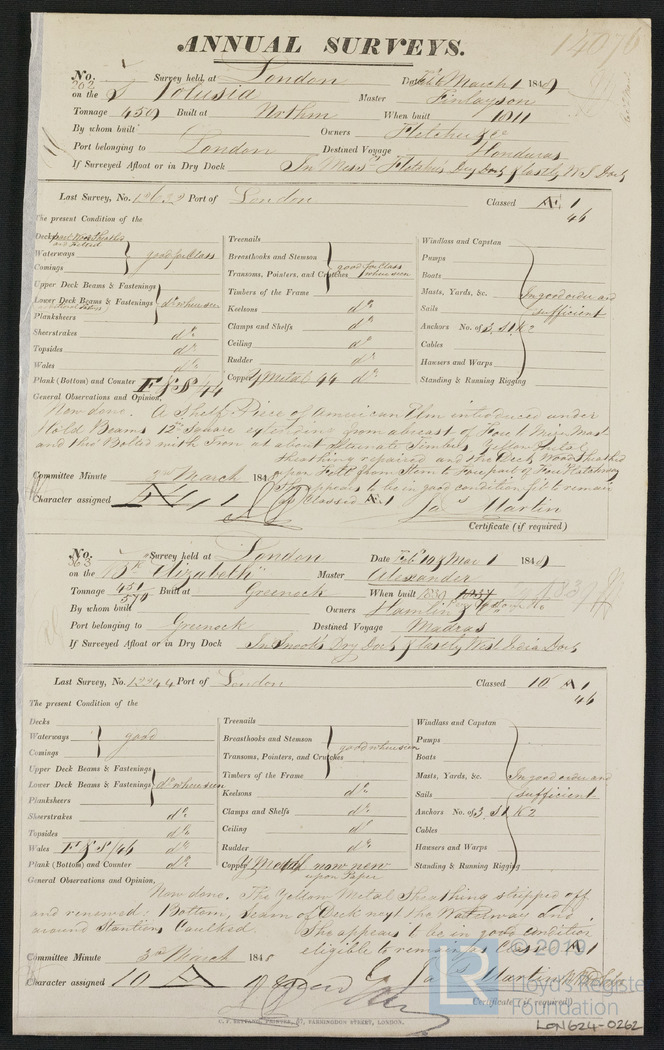 14076
ANNUAL SURVEYS.
No. 262 Survey held at London Date Feb 6 March 1 1848
on the S Volusia Master Finlayson
Tonnage 459 Built at When built 1811
By whom built Owners Fletcher &Co
Port belonging to London Destined Voyage Honduras
If Surveyed Afloat or in Dry Dock In Messrs Fletcher's Dry Dock & lastly W.I. Dock
Last Survey, No. 12632 Port of London Classed Æ 1
46
The present Condition of the
Decks part Wood Sheathed and Felted
Waterways good for Class
Comings
Upper Deck Beams & Fastenings
Lower Deck Beams & Fastenings do where seen
Planksheers
Sheerstrakes do
Topsides do
Wales do
Plank (Bottom) and Counter F & S 44
Treenails
Breasthooks and Stemson
Transoms, Pointers, and Crutches good for Class where seen
Timbers of the Frame
Keelsons do
Clamps and Shelfs do
Ceiling do
Rudder do
Copper Y Metal 44 do
Windlass and Capstan
Pumps
Boats
Masts, Yards, &c. In good order and
Sails sufficient
Anchors No. of 3. S1. K2
Cables
Hausers and Warps
Standing & Running Rigging
General Observations and Opinion,
Now done. A Shelf Piece of American Elm introduced under
Hold Beams 12in Square extending from abreast of Fore to Main Mast
and thro' Bolted with Iron at about alternate Timbers
sheathing repaired and the Deck Wood sheathed
upon Felt from Stem to Forepart of Fore Hatchway
She appears to be in good condition fit to remain
as Classed Æ 1
Committee Minute 3rd March 1848
Character assigned Æ 1
Jas Martin
Certificate (if required)
No. 263 Survey held at London Date Feb 10 & Mar 1 1848
on the Bk "Elizabeth" Master Alexander
Tonnage 451 570 Built at Greenock When built 1830
By whom built Owners Hamlin &Co
Port belonging to Greenock Destined Voyage Madras
If Surveyed Afloat or in Dry Dock In Snook's Dry Dock & lastly West India Dock
Last Survey, No. 13244 Port of London Classed 10 A 1
46
The present Condition of the
Decks
Waterways good
Comings
Upper Deck Beams & Fastenings
Lower Deck Beams & Fastenings do where seen
Planksheers
Sheerstrakes do
Topsides do
Wales F & S /46 do
Plank (Bottom) and Counter do
Treenails
Breasthooks and Stemson
Transoms, Pointers, and Crutches good where seen
Timbers of the Frame
Keelsons do
Clamps and Shelfs do
Ceiling do
Rudder do
Copper Y Metal now new
upon Paper
Windlass and Capstan
Pumps
Boats
Masts, Yards, &c. In good order and
Sails sufficient
Anchors No. of 3. S1. K2
Cables
Hausers and Warps
Standing & Running Rigging
General Observations and Opinion,
Now done. The Yellow Metal Sheathing stripped off
and renewed: Bottom, seam of Deck next the Waterway and
around Stantions Caulked. She appears to be in good condition
eligible to remain as Classed A 1
Committee Minute 3rd March 1848
Character assigned 10 A
Jas Martin
Certificate (if required)
C. F. SEYFANG, PRINTER, 57, FARRINGDON STREET, LONDON.
LR © 2019
Lloyd's Register
Foundation
LON624-0262